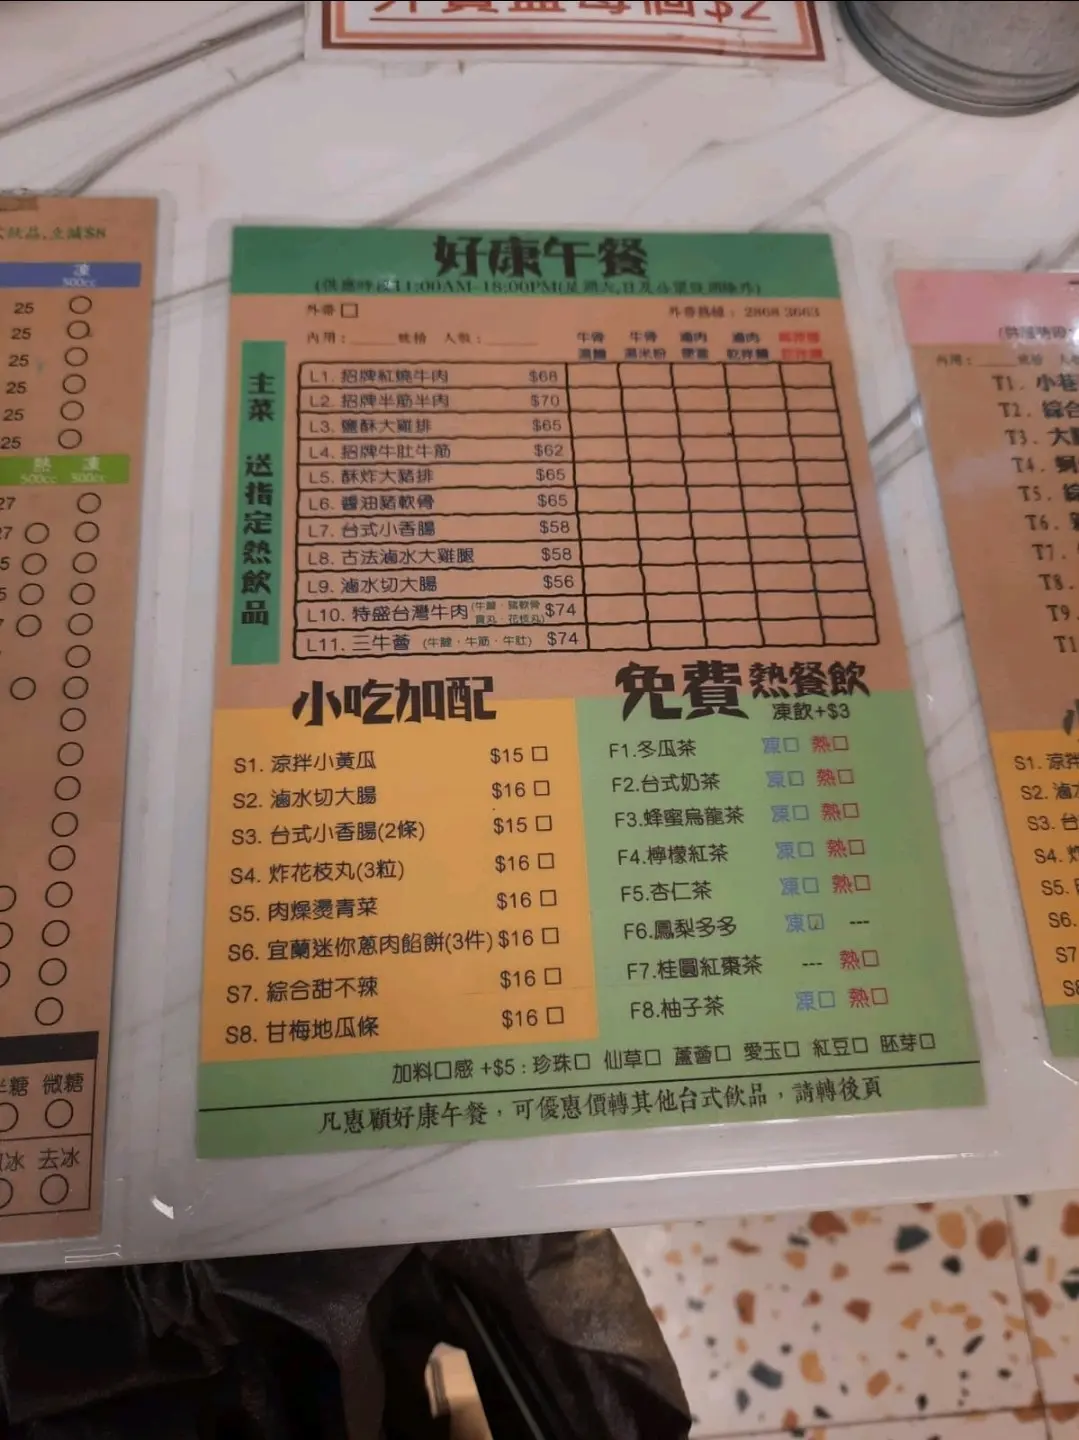 外賣盒每個$2
好康午餐
(供應時段11:00AM-18:00PM(星期六,日及公眾假期除外)
外帶 □ 外帶熱線: 2868 3663
內用:_____號枱 人數:_____
牛骨湯麵 牛骨湯米粉 滷肉便當 滷肉乾拌麵
主菜 送指定熱飲品
L1. 招牌紅燒牛肉 $68
L2. 招牌半筋半肉 $70
L3. 鹽酥大雞排 $65
L4. 招牌牛肚牛筋 $62
L5. 酥炸大豬排 $65
L6. 醬油豬軟骨 $65
L7. 台式小香腸 $58
L8. 古法滷水大雞腿 $58
L9. 滷水切大腸 $56
L10. 特盛台灣牛肉(牛腱・豬軟骨 貢丸・花枝丸) $74
L11. 三牛薈 (牛腱・牛筋・牛肚) $74
小吃加配
S1. 涼拌小黃瓜 $15 □
S2. 滷水切大腸 $16 □
S3. 台式小香腸(2條) $15 □
S4. 炸花枝丸(3粒) $16 □
S5. 肉燥燙青菜 $16 □
S6. 宜蘭迷你蔥肉餡餅(3件) $16 □
S7. 綜合甜不辣 $16 □
S8. 甘梅地瓜條 $16 □
免費熱餐飲
凍飲+$3
F1.冬瓜茶 凍□ 熱□
F2.台式奶茶 凍□ 熱□
F3.蜂蜜烏龍茶 凍□ 熱□
F4.檸檬紅茶 凍□ 熱□
F5.杏仁茶 凍□ 熱□
F6.鳳梨多多 凍□ ---
F7.桂圓紅棗茶 --- 熱□
F8.柚子茶 凍□ 熱□
加料口感 +$5 : 珍珠□ 仙草□ 蘆薈□ 愛玉□ 紅豆□ 胚芽□
凡惠顧好康午餐，可優惠價轉其他台式飲品，請轉後頁
飲品,立減$8
凍
500cc
25
25
25
25
25
25
熱 凍
500cc 500cc
27
半糖 微糖
冰 去冰
內用:____號枱
T1. 小巷
T2. 綜合
T3. 大
T4.
T5.
T6.
T7.
T8.
T9.
S1. 涼拌
S2. 滷
S3. 台
S4. 炸
S5.
S6.
S7